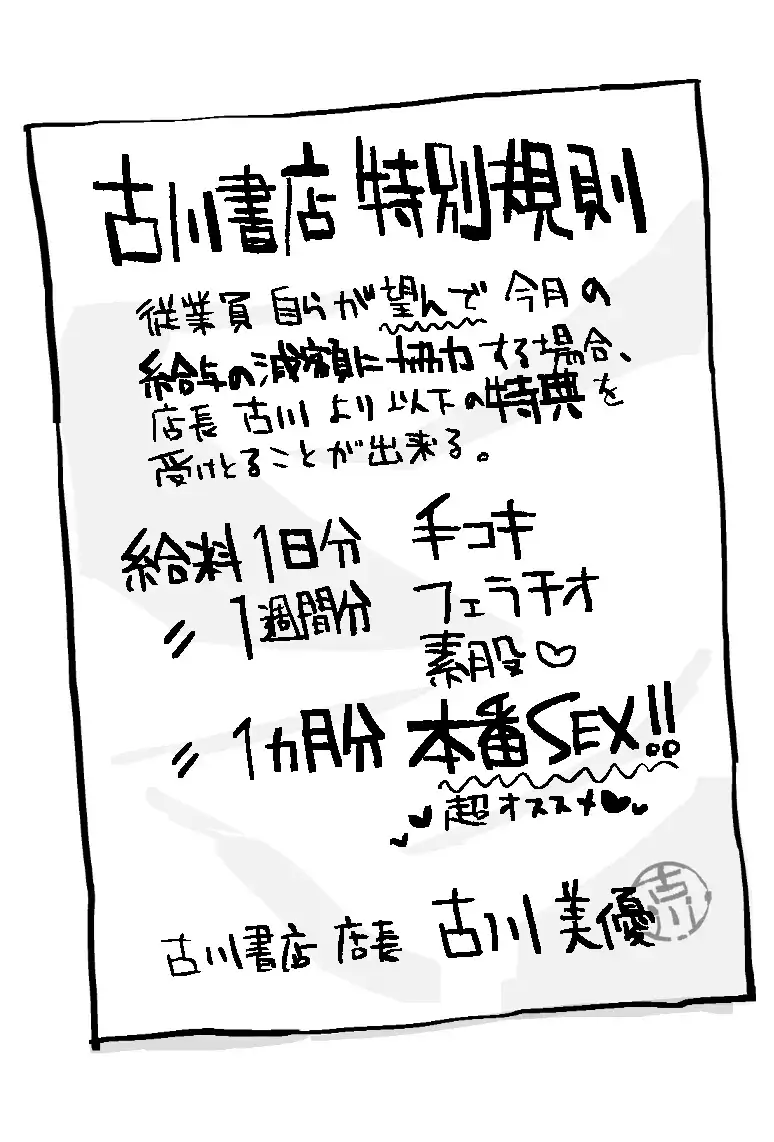 古川書店 特別規則
従業員 自らが望んで 今月の
給与の減額に協力する場合、
店長 古川より以下の特典を
受けとることが出来る。
給料1日分 手コキ
〃 1週間分 フェラチオ
素股♡
〃 1ヵ月分 本番SEX!!
♥超オススメ♥
古川書店 店長 古川 美優
古川